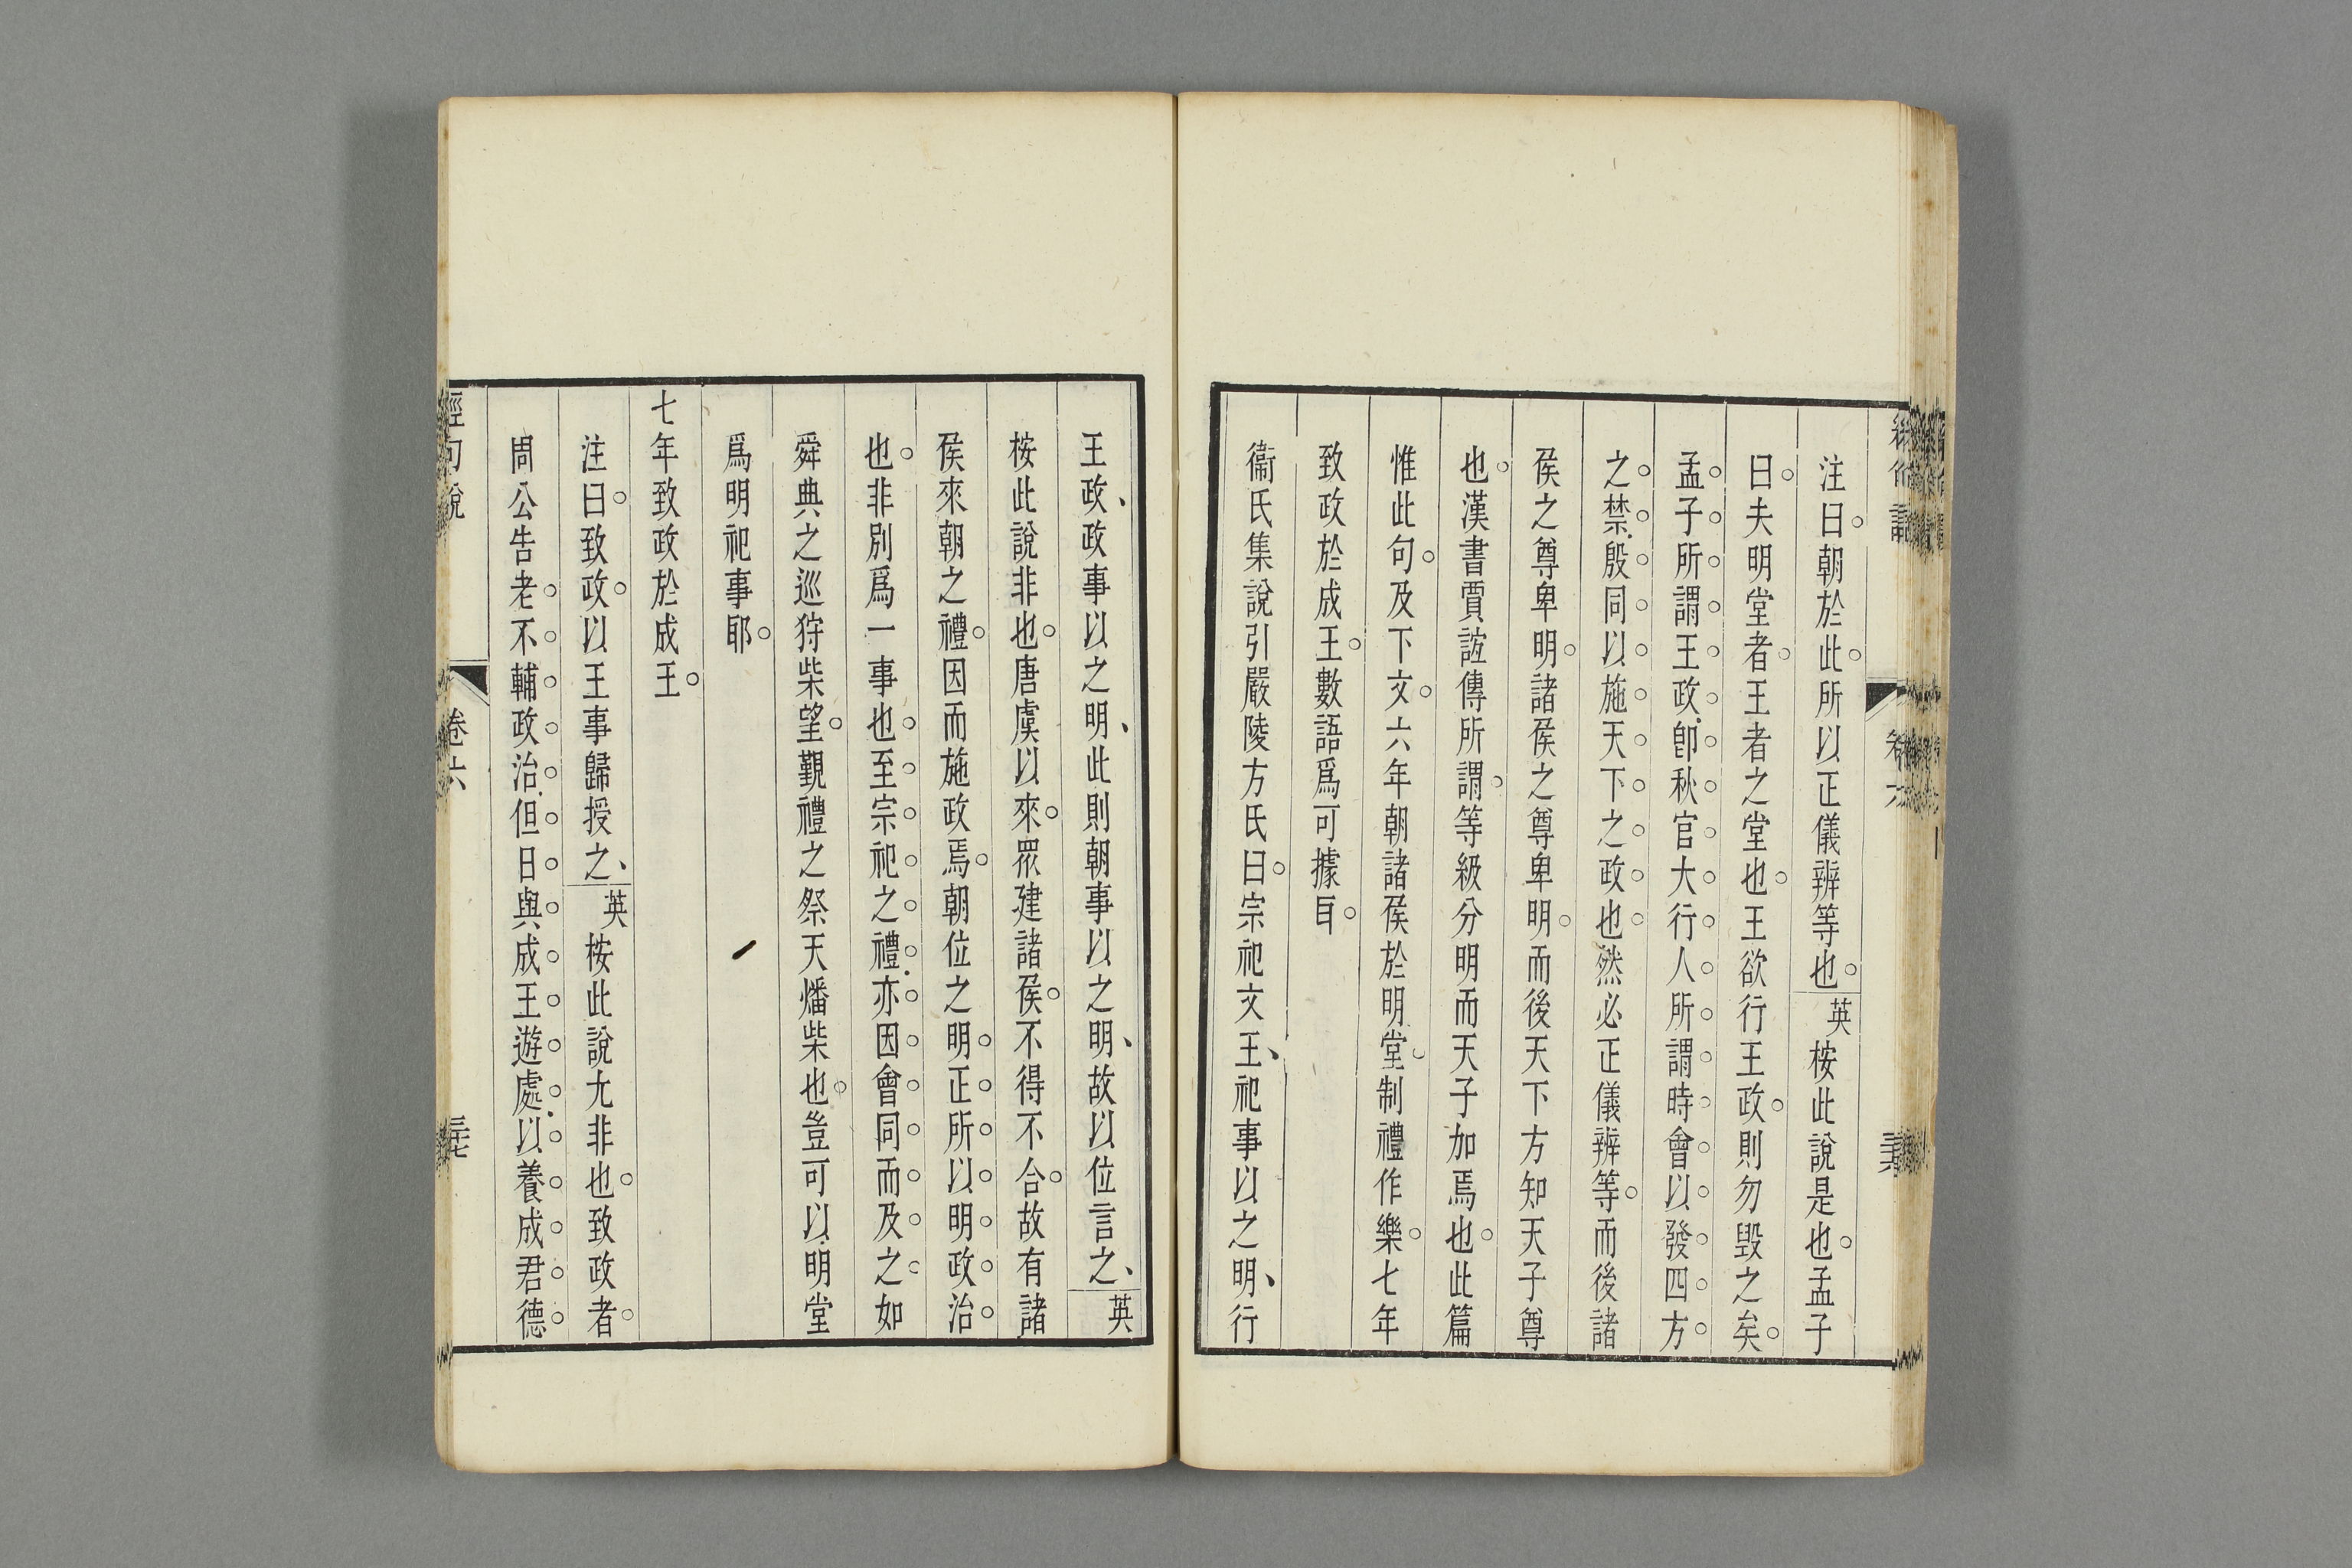 注曰朝於此所以正儀辨等也英桉此說是也孟子
曰夫明堂者王者之堂也王欲行王政則勿毀之矣
孟子所謂王政卽秋官大行人所謂時會以發四方
之禁殷同以施天下之政也然必正儀辨等而後諸
侯之尊卑明諸侯之尊卑明而後天下方知天子尊
也漢書賈誼傳所謂等級分明而天子加焉也此篇
惟此句及下文六年朝諸侯於明堂制禮作樂七年
致政於成王數語爲可據耳
衞氏集說引嚴陵方氏曰宗祀文王祀事以之明行
王政政事以之明此則朝事以之明故以位言之英
桉此說非也唐虞以來眾建諸侯不得不合故有諸
侯來朝之禮因而施政焉朝位之明正所以明政治
也非別爲一事也至宗祀之禮亦因會同而及之如
舜典之巡狩柴望覲禮之祭天燔柴也豈可以明堂
爲明祀事耶
七年致政於成王
注曰致政以王事歸授之英桉此說尤非也致政者
周公告老不輔政治但日與成王遊處以養成君德
經句說
卷六